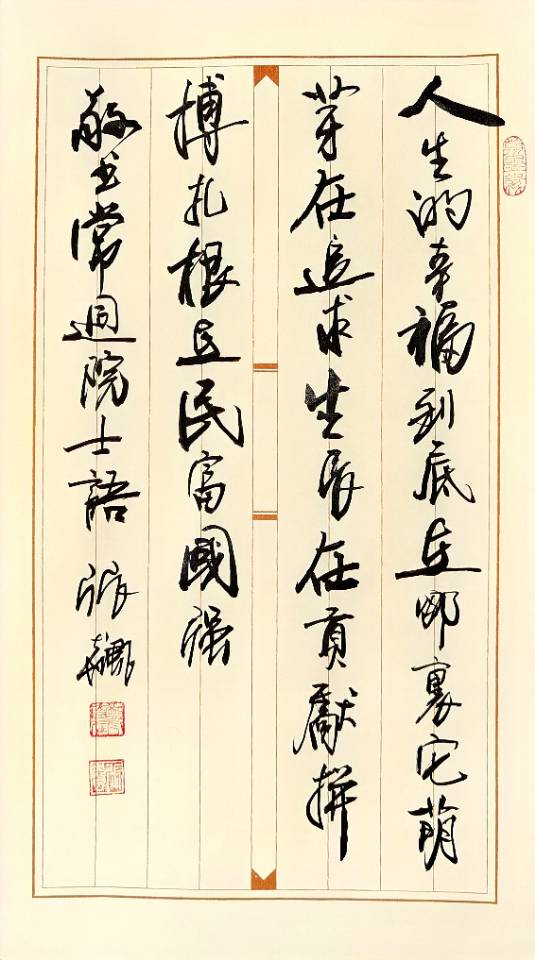 人生的幸福到底在哪裏它萌
芽在追求生长在貢獻拼
搏扎根在民富國强
敬书常迥院士語 张